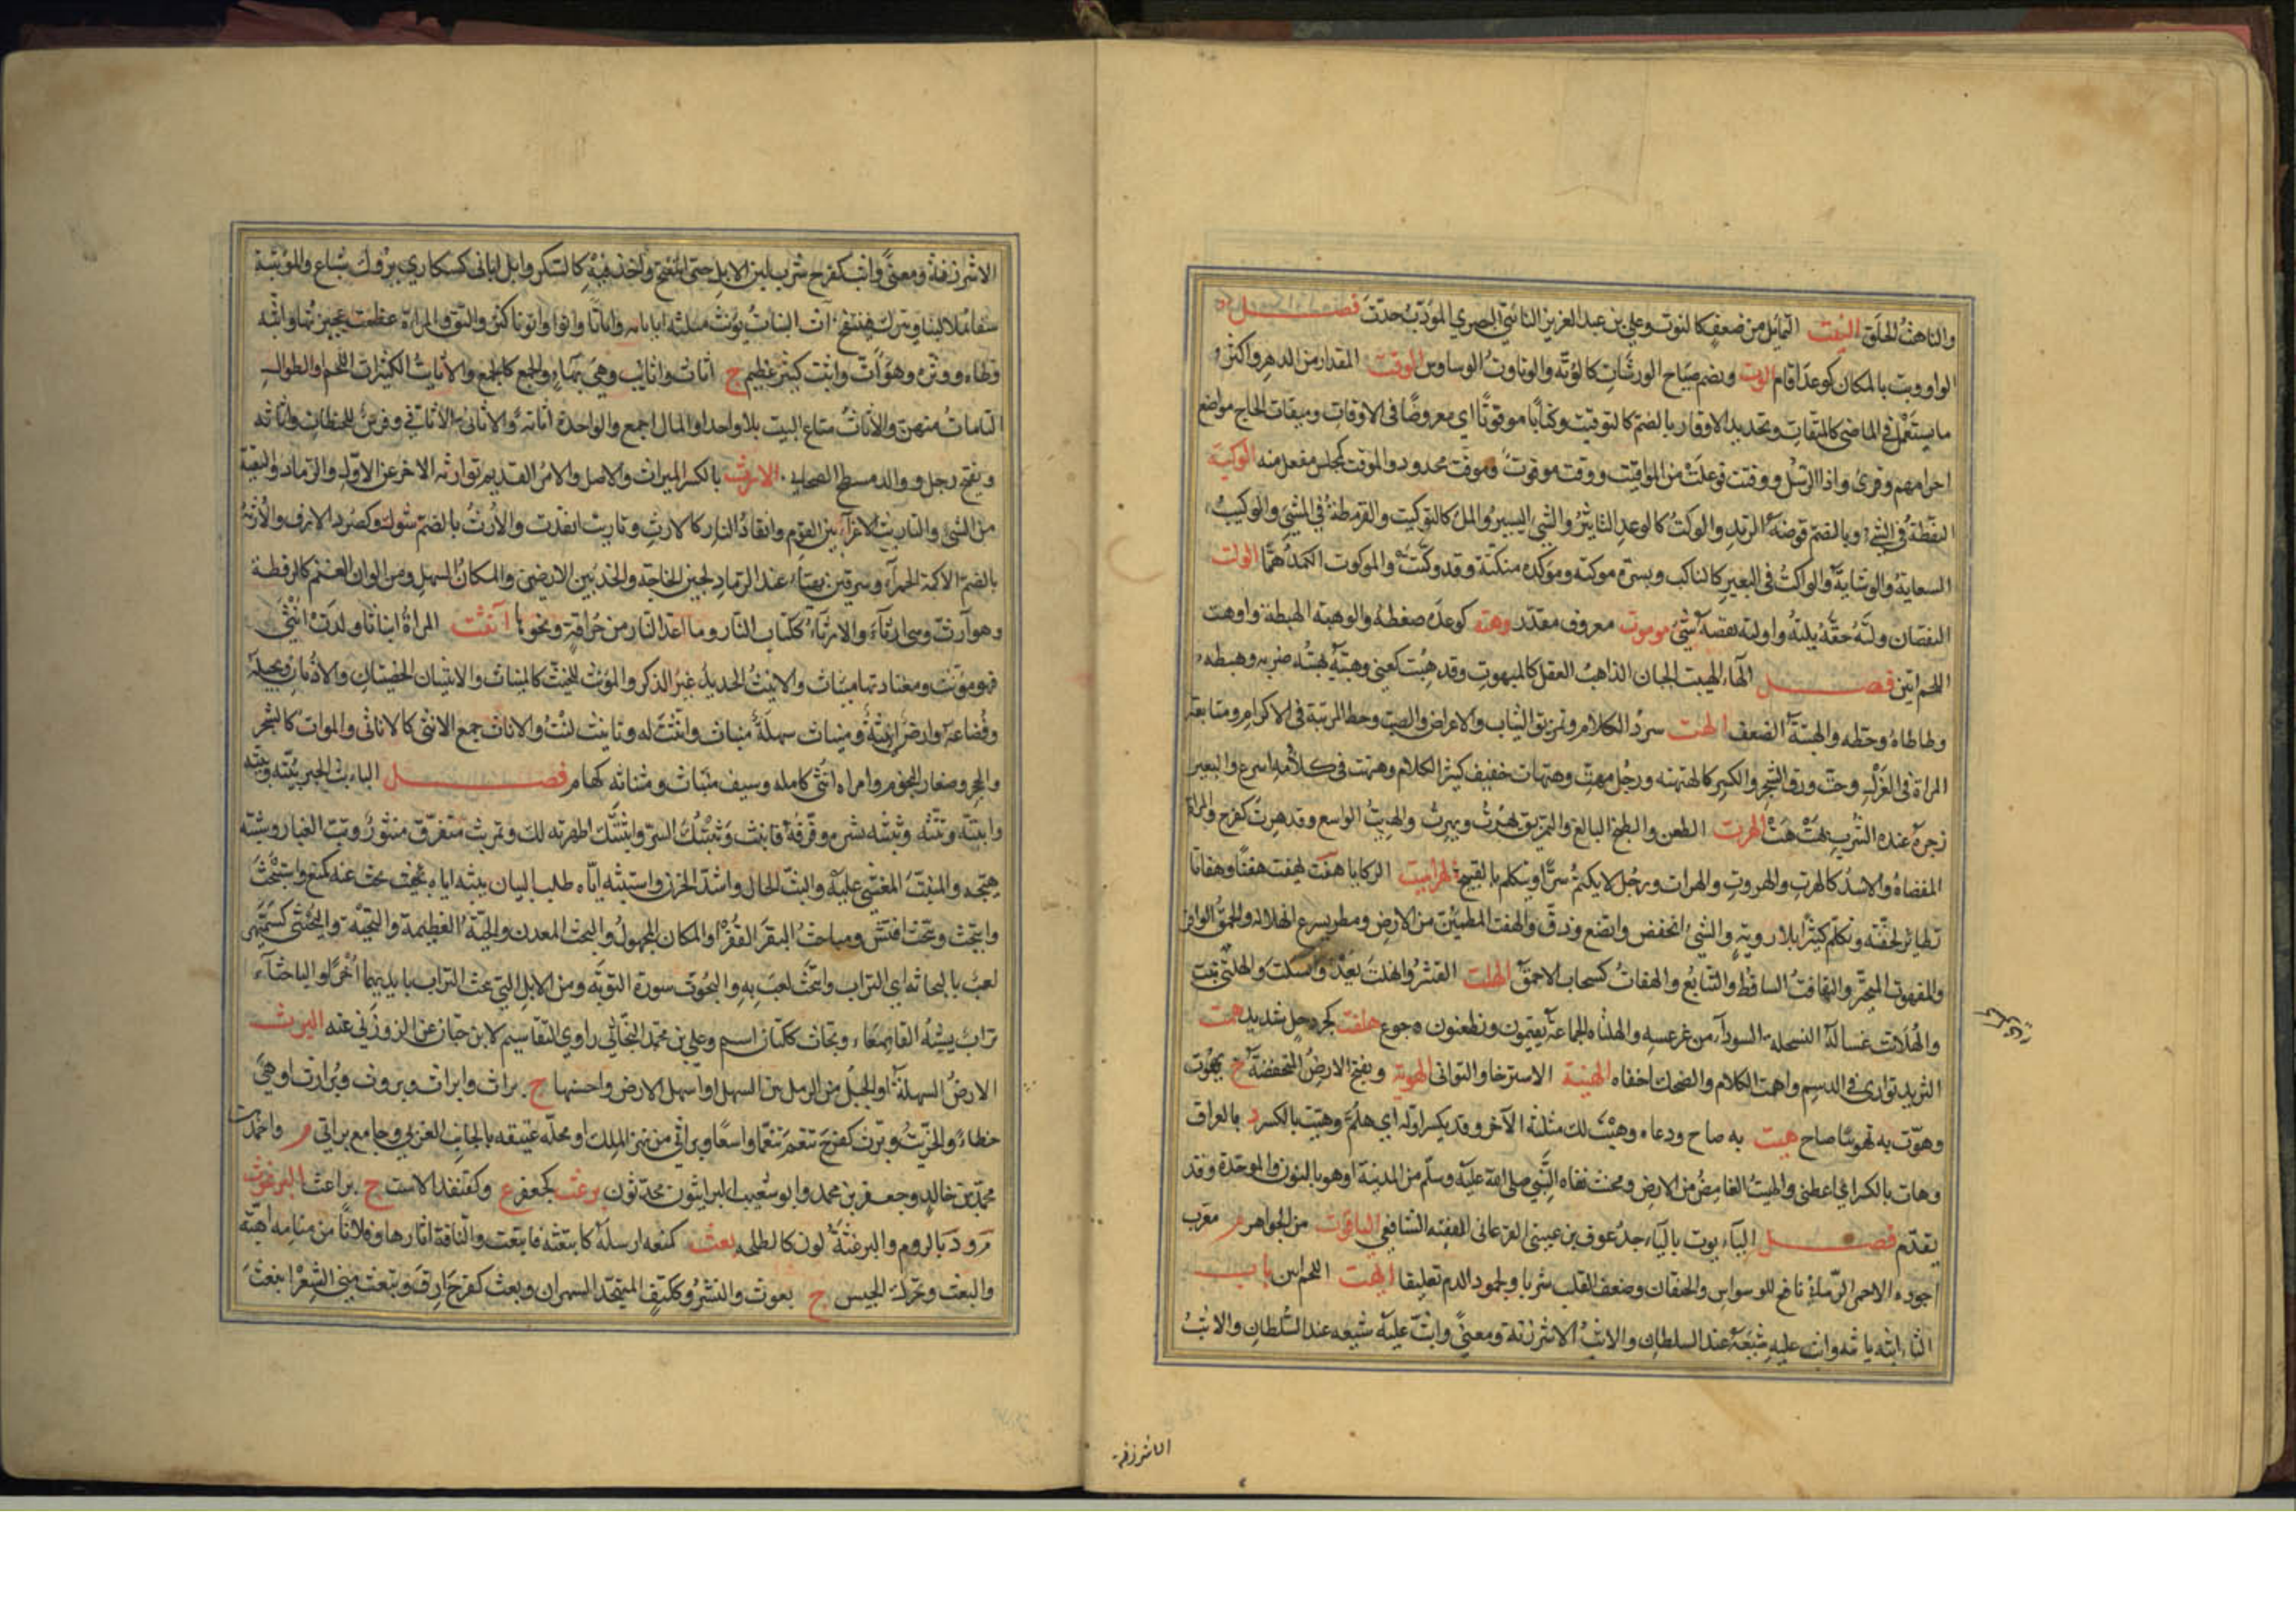 والناهت الحلق النيت التمايل من ضعف كالنوت وعلي بن عبد العزيز النائتي البصري المؤدب حدث فصل
الواو وبت بالمكان كوعد اقام الوت ويضم صياح الورشان كالوتة والوتاوت الوساوس الوقت المقدار من الدهر واكثر
ما يستعمل في الماضي كالميقات وتحديد الاوقات بالضم كالتوقيت وكتابا موقوتا اي مفروضا في الاوقات وميقات الحاج مواضع
احرامهم وقرئ واذا الرسل ووقتت فوعلت من المواقيت ووقت موقوت وموقت محدود والموقت كمجلس مفعل منه الوكتة
النقطة في الشيء وبالضم قرضة الزند والوكت كالوعد التاثير والشيء اليسير والملء كالتوكيت والقرمطة في المشي والوكيت
السعاية والوشاية والواكت في البعير كالناكب وبسرة موكتة وموكته منكتة وقد وكتت والموكوت الكمد هما الولت
النقصان ولته حقه يلته واولته نقصه شيئ موموت معروف مقدر وهته كوعده ضغطه والوهتة الهبطة واوهت
اللحم انتن فصل الهاء الهبيت الجبان الذاهب العقل كالمبهوت وقد هبت كعني وهبته يهبته ضربه وهبطه
وطاطاه وحطه والهبتة الضعف الهت سرد الكلام وتمزيق الثياب والاعراض والصب وحط المرتبة في الاكرام ومتابعة
المراة في الغزل وحت ورق الشجر والكسر كالهتهتة ورجل مهت وهتهات خفيف كثير الكلام وهتهت في كلامه اسرع والبعير
زجره عند الشرب بهت هت الهرت الطعن والطبخ البالغ والتمزيق يهرت ويهرت والهريت الواسع وقد هرت كفرح والمراة
المفضاة والاسد كالهرت والهروت والهرات ورجل لا يكتم سرا او يتكلم بالقبيح هراميت الركايا هفت يهفت هفتا وهفاتا
تطاير لخفته وتكلم كثيرا بلا روية والشيء انخفض واتضع ودق والهفت المطمئن من الارض ومطر يسرع انهلاله والحمق الوافر
والمهفوت المتحير والتهافت الساقط والتتابع والهفات كسحاب الاحمق الهلت القشر وانهلت يعدو وانسلت والهلتى نبت
والهلات غسالة السخلة السوداء من غرسه والهلتاءة الجماعة يقيمون ويظعنون ه جوع هلقت كجردحل شديد همت
الثريد توارى في الدسم واهمت الكلام والضحك اخفاه الهنبتة الاسترخا والتوانى الهوتة ويفتح الارض المنخفضة ج هوت
وهوت به تهويتا صاح هيت به صاح ودعاه وهيت لك مثلثة الآخر وقد يكسر اوله اي هلم وهيت بالكسر د بالعراق
وهات بالكسر اي اعطني والهيت الغامض من الارض ومخنث نفاه النبي صلى الله عليه وسلم من المدينة او هو بالنون والموحدة وقد
تقدم فصل الياء يوت بالياء جد عوف بن عيسى الفرغاني الفقيه الشافعي الياقوت من الجواهر م معرب
اجوده الاحمر الرماني نافع للوسواس والخفقان وضعف القلب شربا ولجمود الدم تعليقا اليهت اللحم انتن باب
الثاء ابثه يابثه وابث عليه شبعه عند السلطان والابث الاشر زنة ومعنى وابث عليه شبعه عند السلطان والابث
الاشر زنة
الاشر زنة ومعنى وابث كفرح شرب لبن الابل حتى انتفخ واخذ فيه كالسكر وابل اباثى كسكارى بروك شباع والموبثة
سقاء يملا لبنا ويترك فينتفخ اث النبات يؤث مثلثة اثاثة واثاثا واثوا واثوثا كثر والتف والمراة عظمت عجيزتها واثثه
وطاه ووثره وهو اث واثيث كبير عظيم ج اثاث واثايث وهي بهاء والجمع كالجمع والاثايث الكثيرات اللحم والطوال
التامات منهن والاثاث متاع البيت بلا واحد او المال اجمع والواحدة اثاثة والاثاثي الاثافي وفرس للحطان واثاثة
ويفتح رجل ووالد مسطح الصحابي الارث بالكسر الميراث والاصل والامر القديم توارثه الاخر عن الاول والرماد والبقية
من الشيء والتاريث الاغراء بين القوم وايقاد النار كالارث وتارثت اتقدت والارث بالضم شوك وكصرد الارف والارثة
بالضم الاكمة الحمراء وسرقين يهياء عند الرماد لحين الحاجة والحد بين الارضين والمكان السهل ومن الوان الغنم كالرقطة
وهو آرث وهي ارثاء والارثاء ككتاب النار وما اعد للنار من حراقة ونحوها آنثت المراة ايناثا ولدت انثى
فهي مؤنث ومعتادتها مئناث والانيث الحديد غير الذكر والمؤنث المخنث كالمئناث والانثيان الخصيتان والاذنان وبجيلة
وقضاعة وارض انيثة ومئناث سهلة منبات وانثت له وتانيث لنت والاناث جمع الانثى كالاناثى والموات كالشجر
والحجر وصغار النجوم وامراة انثى كاملة وسيف مئناث ومئناثة كهام فصل الباء بث الخبر يبثه ويبثه
وابثه وبثثه وبثبثه نشره وفرقه فانبث وبثثتك السر وابثثتك اظهرته لك وتمر بث متفرق منثور وبث الغبار وبثبثه
هيجه والمنبث المغشي عليه والبث الحال واشد الحزن واستبثه اياه طلب اليه ان يبثه اياه بحث بحث عنه كمنع واستبحث
وابتحث وتبحث افتش ومباحث البقر القفر او المكان المجهول والبحث المعدن والحية العظيمة والبحثة والبحيثى كسميهى
لعب بالبحاثة اي التراب وابتحث لعب به والبحوث سورة التوبة ومن الابل التي تبحث التراب بايديها اخرا والباحثاء
تراب يشبه القاصعاء وبحاث ككتان اسم وعلي بن محمد البحاثي راوي التقاسيم لابن حبان عن الزوزني عنه البرث
الارض السهلة او الجبل من الرمل السهل او اسهل الارض واحسنها ج براث وابراث وبروث وبرارث او هي
خطاء والخريت وبرث كفرح تنعم تنعما واسعا وبراثى من نهر الملك او محلة عتيقة بالجانب الغربي وجامع براثى م واحمد بن
محمد بن خالد وجعفر بن محمد وابو شعيب البراثيون محدثون برعث كجعفر ع وكقنفذ الاست ج براعث البرغوث
م ود بالروم والبرغثة لون كالطحلة بعث كمنعه ارسله كابتعثه فانبعث والناقة اثارها وفلانا من منامه اهبه
والبعث ويحرك الجيش ج بعوث والنشر وككتف المتهجد السهران وبعث كفرح ارق وتبعث مني الشعر انبعث